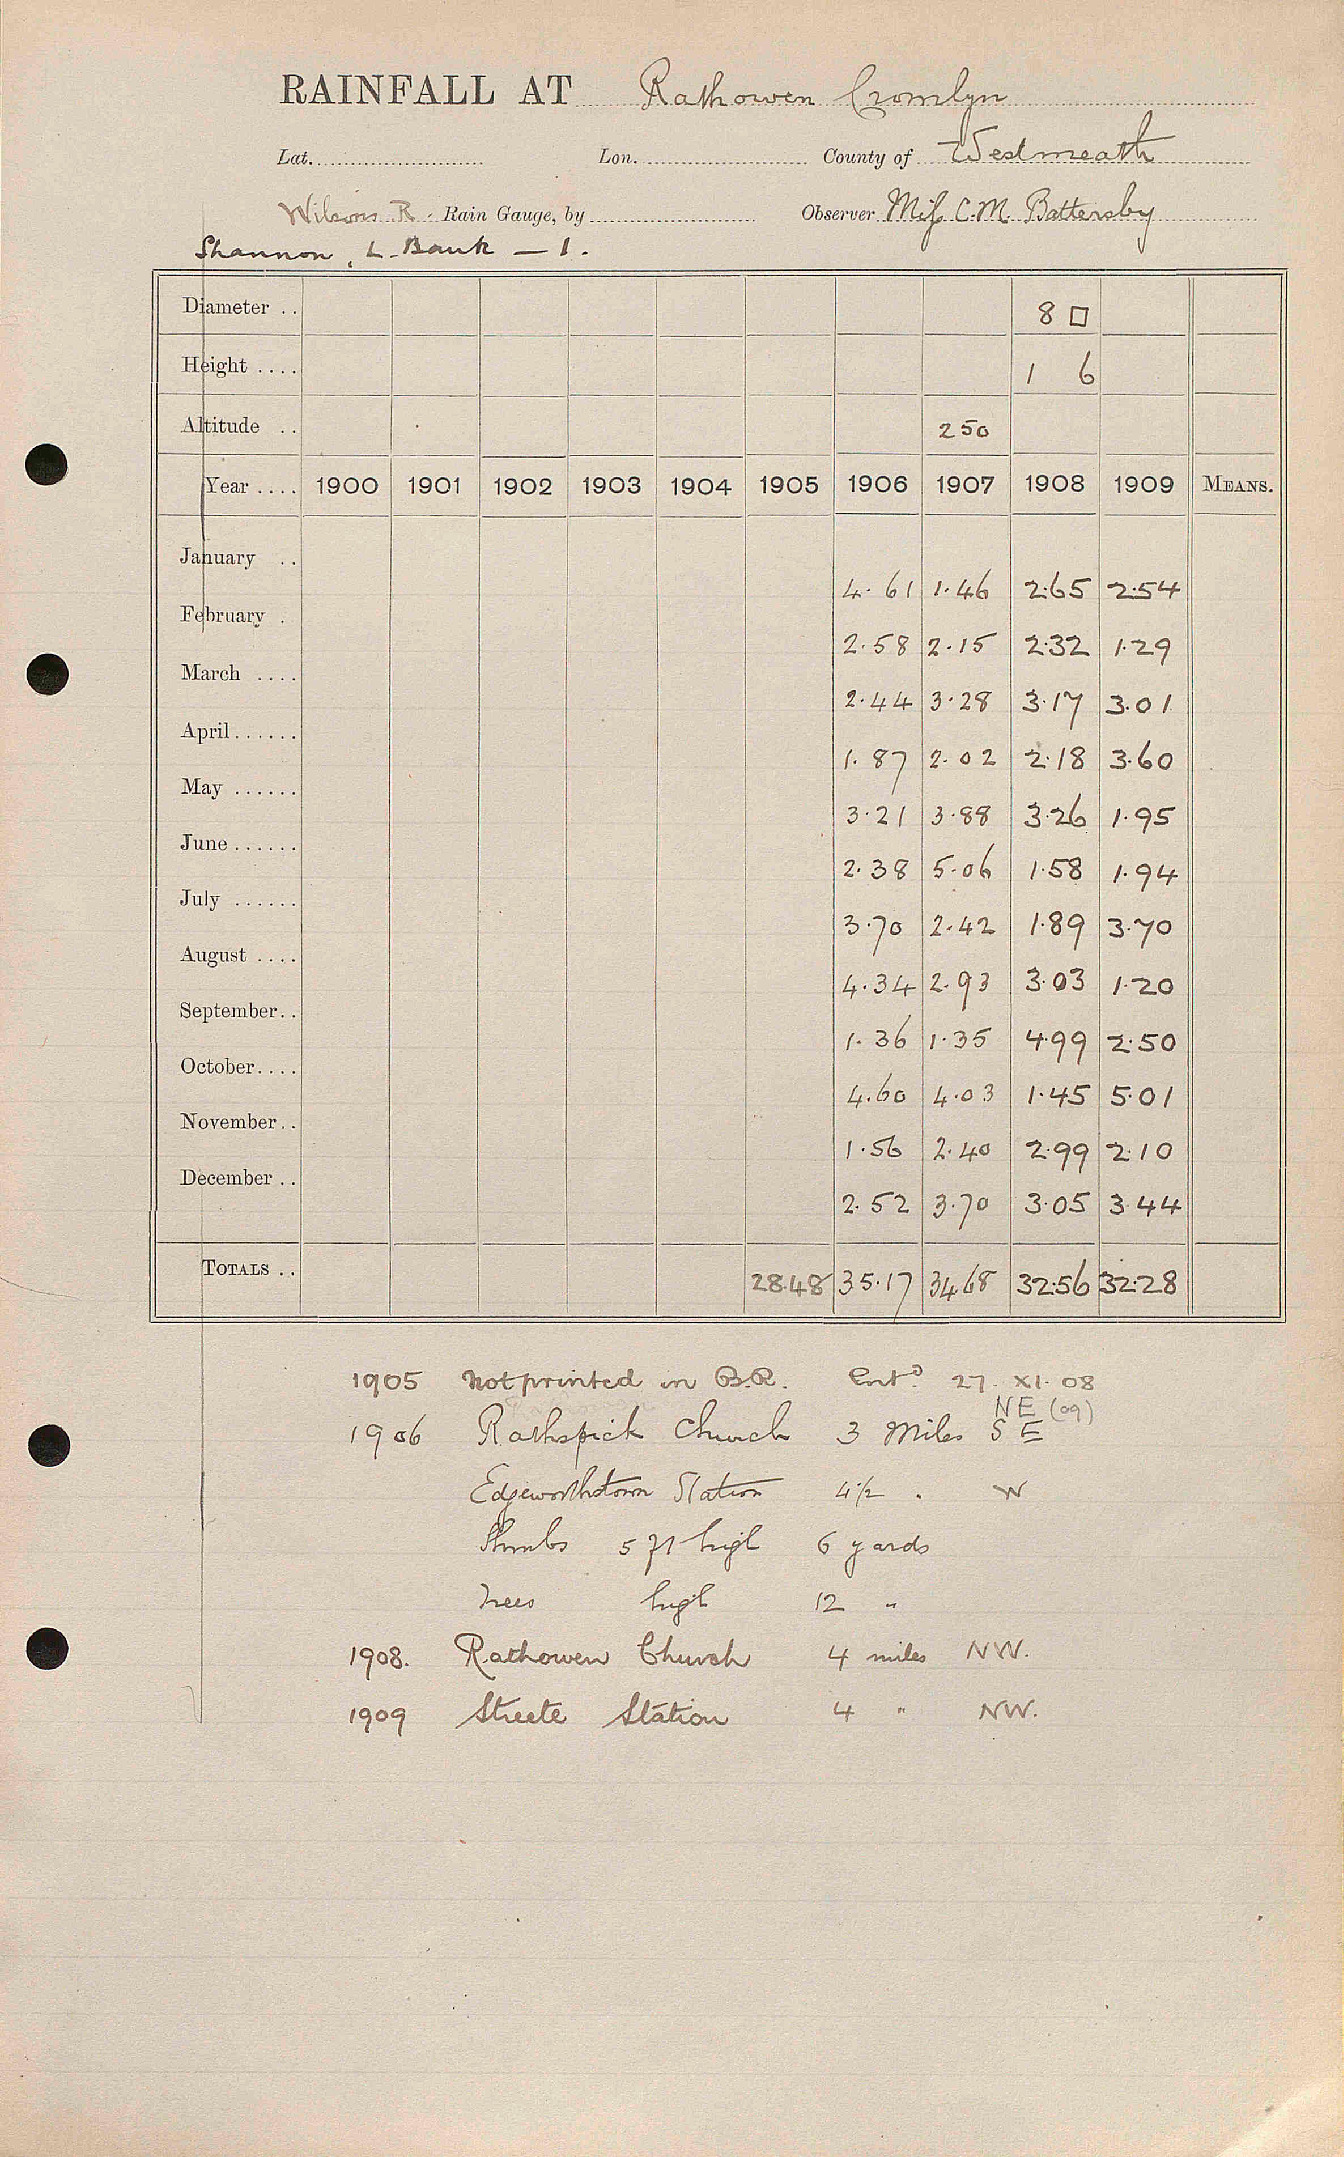 RAINFALL AT Rathowen Cromlyn
Lat. Lon. County of Westmeath
Wilsons R. Rain Gauge, by Observer Miss C.M. Battersby
Shannon, L. Bank — 1.
Diameter .. 8 □
Height .... 1 6
Altitude .. 250
Year .... 1900 1901 1902 1903 1904 1905 1906 1907 1908 1909 MEANS.
January .. 4.61 1.46 2.65 2.54
February . 2.58 2.15 2.32 1.29
March .... 2.44 3.28 3.17 3.01
April...... 1.87 2.02 2.18 3.60
May ...... 3.21 3.88 3.26 1.95
June...... 2.38 5.06 1.58 1.94
July ...... 3.70 2.42 1.89 3.70
August .... 4.34 2.93 3.03 1.20
September.. 1.36 1.35 4.99 2.50
October.... 4.60 4.03 1.45 5.01
November.. 1.56 2.40 2.99 2.10
December .. 2.52 3.70 3.05 3.44
TOTALS .. 28.48 35.17 34.68 32.56 32.28
1905 Not printed in B.R. Entd. 27. XI. 08
NE (09)
1906 Rathspick Church 3 Miles S E
Edgeworthstown Station 4 1/2 . W
Shrubs 5 ft high 6 yards
Trees high 12 "
1908. Rathowen Church 4 miles NW.
1909 Streete Station 4 " NW.